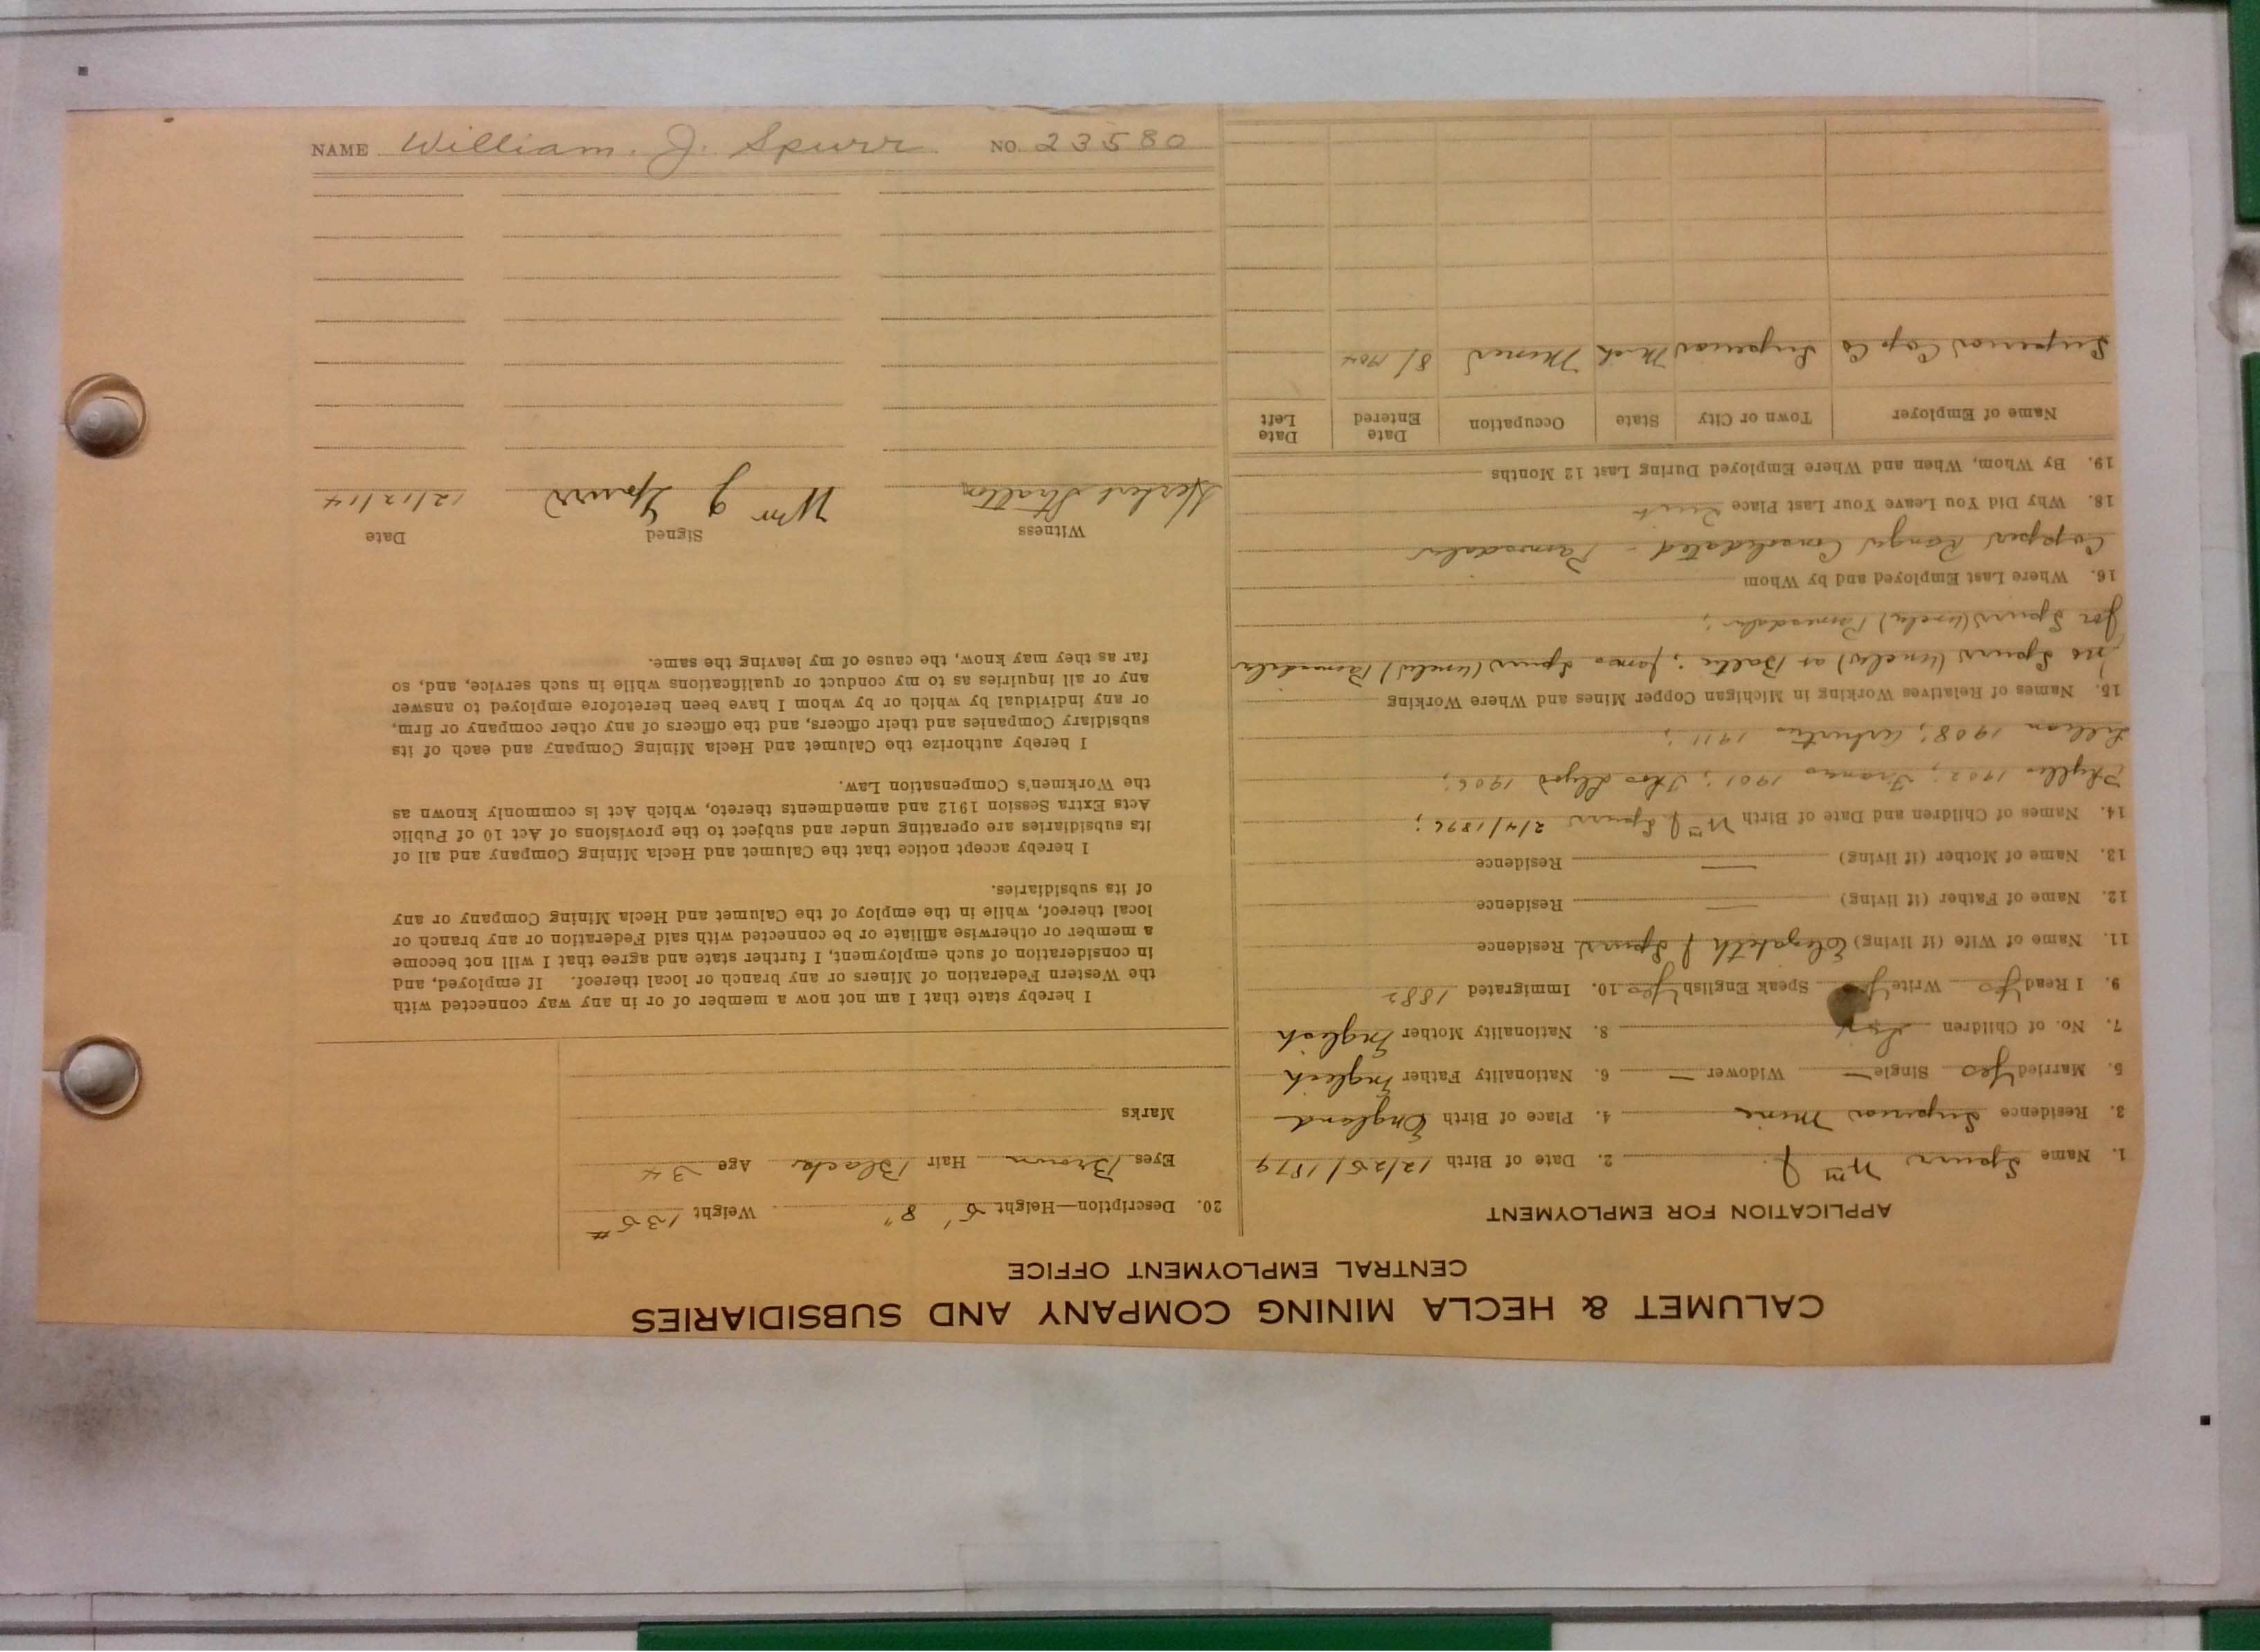 CALUMET & HECLA MINING COMPANY AND SUBSIDIARIES
CENTRAL EMPLOYMENT OFFICE
APPLICATION FOR EMPLOYMENT
1. Name Spurr Wm J. 2. Date of Birth 12/25/1879
3. Residence Superior Mine 4. Place of Birth England
5. Married Yes Single — Widower — 6. Nationality Father English
7. No. of Children Six 8. Nationality Mother English
9. I Read Yes Write Yes Speak English Yes 10. Immigrated 1882
11. Name of Wife (if living) Elizabeth J Spurr Residence
12. Name of Father (if living) — Residence
13. Name of Mother (if living) — Residence
14. Names of Children and Date of Birth Wm J Spurr 2/4/1896;
Phyllis 1902; Frances 1901; Thos Lloyd 1906;
Lillian 1908; 1911;
15. Names of Relatives Working in Michigan Copper Mines and Where Working
Spurr (uncle) at Baltic; James Spurr (uncle) Painesdale
Joe Spurr (uncle) Painesdale;
16. Where Last Employed and by Whom
Copper Range Consolidated - Painesdale
18. Why Did You Leave Your Last Place Quit
19. By Whom, When and Where Employed During Last 12 Months
Name of Employer Town or City State Occupation Date Entered Date Left
Superior Cop Co Superior Mich Miner 8/1904
20. Description—Height 5' 8" Weight 135#
Eyes Brown Hair Black Age 34
Marks
I hereby state that I am not now a member of or in any way connected with
the Western Federation of Miners or any branch or local thereof. If employed, and
in consideration of such employment, I further state and agree that I will not become
a member or otherwise affiliate or be connected with said Federation or any branch or
local thereof, while in the employ of the Calumet and Hecla Mining Company or any
of its subsidiaries.
I hereby accept notice that the Calumet and Hecla Mining Company and all of
its subsidiaries are operating under and subject to the provisions of Act 10 of Public
Acts Extra Session 1912 and amendments thereto, which Act is commonly known as
the Workmen's Compensation Law.
I hereby authorize the Calumet and Hecla Mining Company and each of its
subsidiary Companies and their officers, and the officers of any other company or firm,
or any individual by which or by whom I have been heretofore employed to answer
any or all inquiries as to my conduct or qualifications while in such service, and, so
far as they may know, the cause of my leaving the same.
Witness Signed Date
Herbert Stratton Wm J Spurr 12/12/14
NAME William. J. Spurr NO. 23580